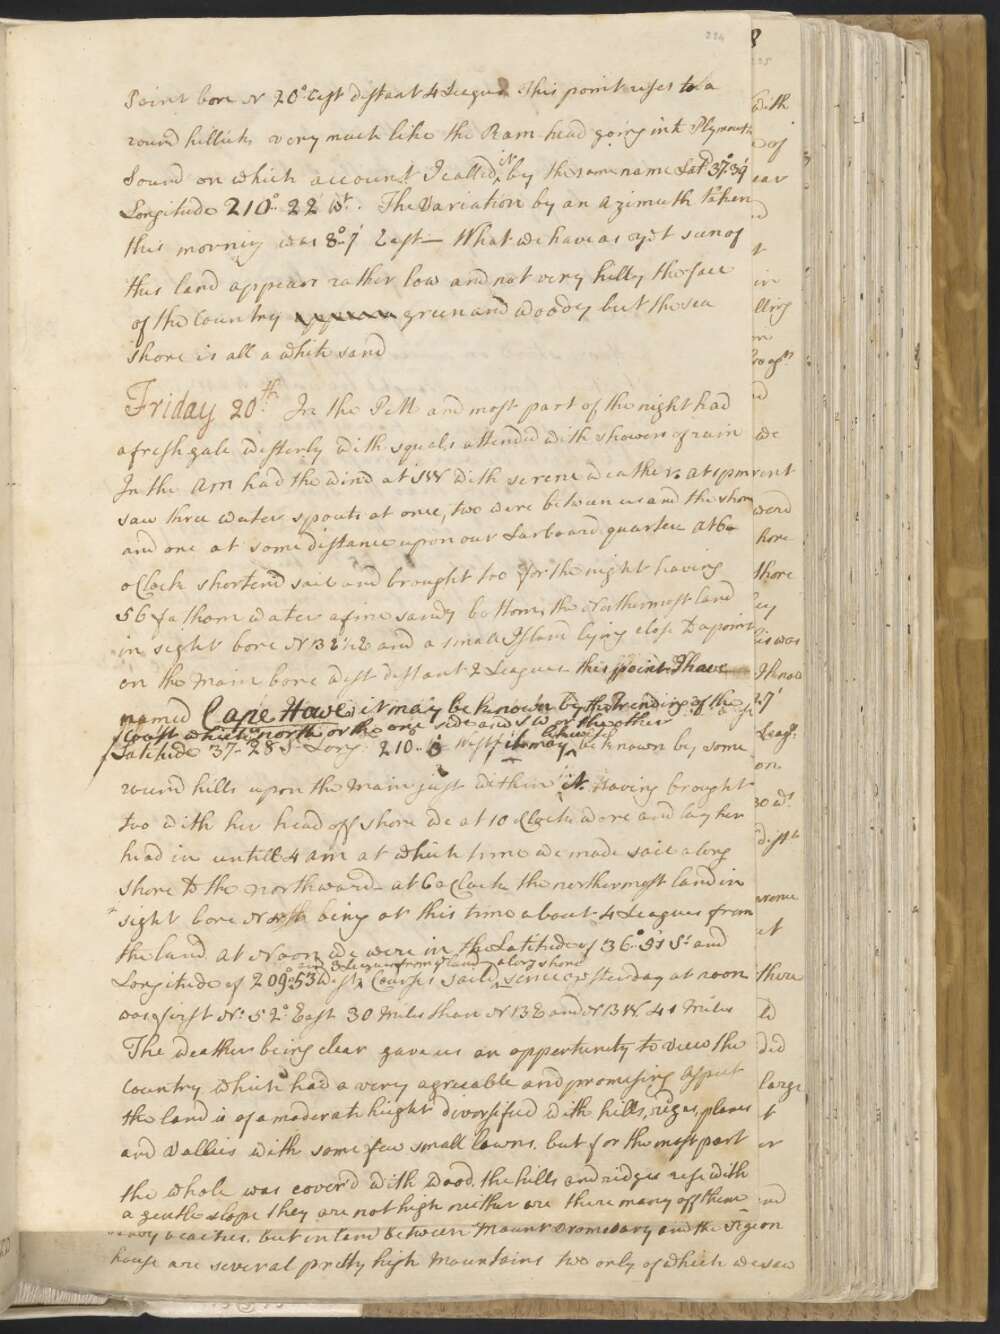 224
Point bore N 20° East distant 4 Leagues This point rises to a
round hillick, very much like the Ram head going into Plymouth
Sound on which account I called it by the same name Latd 37°..39'
Longitude 210°..22' Wt. The Variation by an Azimuth taken
this morning was 8°..7' East — What we have as yet seen of
this land appears rather low and not very hilly the face
of the Country green and woody but the sea
shore is all a white sand
Friday 20th. In the PM and most part of the night had
a fresh gale westerly with squals attended with showers of rain
In the AM had the wind at SW with serene weather. at 1 pm
saw three water spouts at once, two were between us and the shore
and one at some distance upon our Larboard quarter at 6
oClock shortend sail and brought too for the night having
56 fathom water a fine sandy bottom, the Northermost land
in sight bore NBE½E and a small Island lying close to a point
on the Main bore west distant 2 Leagues this point I have
named Cape Howe, it may be known by the Trending of the
Coast which is north on the one side and SW on the other
Latitude 37°..28' S. Long. 210°.. West it may likewise be known by some
round hills upon the main just within it. Having brought
too with her head off shore we at 10 oClock wore and lay her
head in untill 4 am at which time we made sail along
shore to the northward at 6 oClock the northermost land in
sight bore North being at this time about 4 Leagues from
the land At Noon we were in the Latitude of 36°..51' S. and
Longitude of 209°..53' West and 3 Leagues from the land Course saild along shore since yesterday at noon
was first N. 52° East 30 Miles than NBE and NBW 41 Miles
The weather being clear gave us an oppertunity to view the
Country which had a very agreable and promising Aspect
the land is of a moderate height diversified with hills, ridges, planes
and Vallies with some few small lawns. but for the most part
the whole was coverd with wood, the hills and ridges rise with
a gentle slope they are not high neither are there many of them
sandy beaches. but inland between Mount Dromedary and the Pigeon
house are several pretty high Mountains two only of which we saw